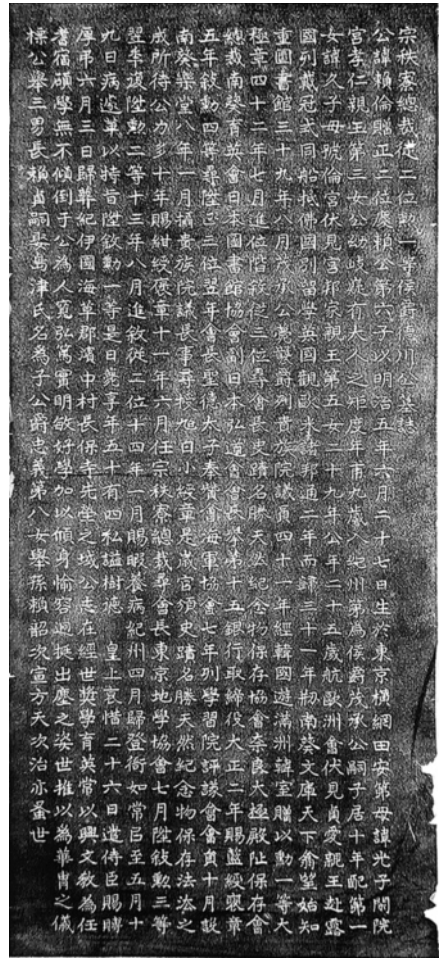 宗秩寮總裁從二位勲一等侯爵德川公墓誌
公諱賴倫贈正二位慶賴公第六子以明治五年六月二十七日生於東京橫網田安第母諱光子閑院
宮孝仁親王第三女公幼岐嶷有大人之矩度年甫九歲入紀州第爲侯爵茂承公嗣子居十年配第一
女諱久子母號倫宮伏見宮邦家親王第五女二十九年公年二十五歲航歐洲會伏見貞愛親王赴露
國列戴冠式同船抵佛國別留學英國觀歐米諸邦通二年而歸三十一年刱南葵文庫天下翕望始知
重圖書館三十九年八月茂承公薨襲爵列貴族院議員四十一年經韓國遊滿洲韓室贈以勳一等大
極章四十二年七月進位階敘從三位尋會長史蹟名勝天然紀念物保存協會奈良大極殿阯保存會
總裁南葵育英會日本圖書館協會副日本弘道會會長舉第十五銀行取締役大正二年賜藍綬褒章
五年敍勳四等尋陞正三位翌年會長聖德太子奉贊會海軍協會七年列學習院評議會會員十月設
南葵樂堂八年一月攝貴族院議長事尋授旭日小綬章是歲官頒史蹟名勝天然紀念物保存法法之
成所待公力多十年賜紺綬褒章十一年六月任宗秩寮總裁尋會長東京地學協會七月陞敍勳三等
翌年復陞勳二等十三年八月進敘從二位十四年一月賜暇養病紀州四月歸登衙如常巳至五月十
九日病遽革以特旨陞敘勳一等是日薨享年五十有四私謚樹德　皇上哀惜二十六日遣侍臣賜賻
厚弔六月三日歸葬紀伊國海草郡濱中村長保寺先塋之域公志在經世奬學育英常以興文敎為任
耆宿碩學無不傾倒于公為人寬弘篤實明敏好學加以傾身愉容迥挺出塵之姿世推以為華胄之儀
標公舉三男長賴貞嗣娶島津氏名為子公爵忠義第八女舉孫賴韶次宣方夭次治亦蚤世